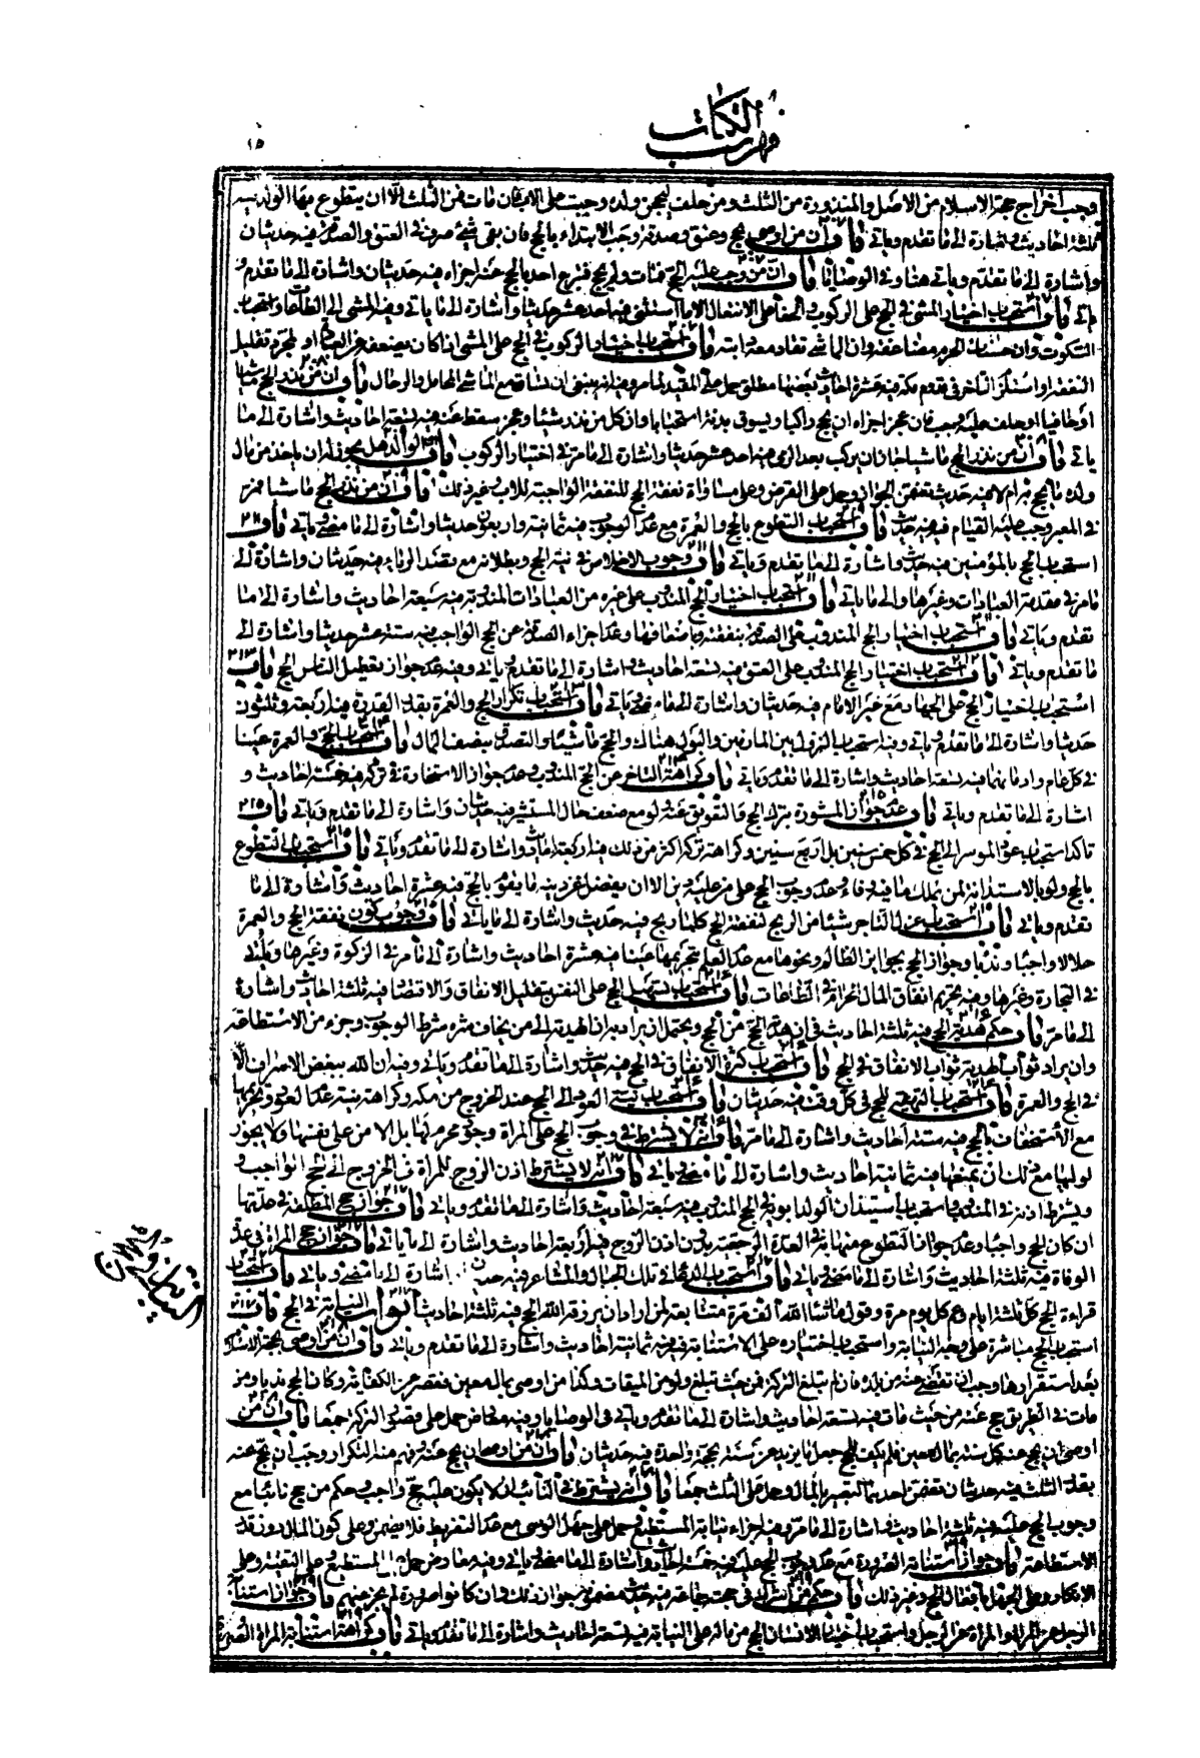 فهرست الكتاب
١٥
وجب اخراج حجة الاسلام من الاصل والمنذورة من الثلث ومن حلف ليحجن ولده وجبت على الاب فان مات فمن الثلث الا ان يتطوع بها الولد فيه
ثلثة احاديث واشارة الى ما تقدم وياتى باب ان من اوصى بحج وعتق وصدقة وجب الابتداء بالحج فان بقى شئ صرف فى العتق والصدقة فيه حديثان
واشارة الى ما تقدم وياتى هنا وفى الوصايا باب ان من وجب عليه الحج فمات ولم يحج فتبرع احد بالحج عنه اجزاه فيه حديثان واشارة الى ما تقدم و
ياتى باب استحباب اختيار المشى فى الحج على الركوب والحفا على الانتعال الا ما استثنى فيه احد عشر حديثا واشارة الى ما ياتى وفيه المشى الى الطاعات واستحباب
السكوت وان حسنات الحرم مضاعفة وان الماشى تقاد معه دابته باب استحباب اختيار الركوب فى الحج على المشى اذا كان يضعفه عن العبادة او لمجرد تقليل
النفقة او استلزم التاخر فى قدوم مكة فيه عشرة احاديث بعضها مطلق حمل على المقيد لما مر وفيه انه ينبغى ان تساق مع الماشى المحامل والرحال باب ان من نذر الحج ماشيا
او حافيا او حلف عليه وجب فان عجز اجزاه ان يحج راكبا ويسوق بدنة استحبابا وان كل من نذر شيئا وعجز سقط عنه فيه تسعة احاديث واشارة الى ما
ياتى باب ان من نذر الحج ماشيا جاز ان يركب بعد الرمى فيه احد عشر حديثا واشارة الى ما مر فى اختيار الركوب باب الوالد هل يجوز له ان ياخذ من مال
ولده ما يحج به ام لا فيه حديث تضمن الجواز وحمل على القرض وعلى مساواة نفقة الحج للنفقة الواجبة للاب وغير ذلك باب ان من نذر الحج ماشيا فمر
فى المعبر وجب عليه القيام فيه حديث باب استحباب التطوع بالحج والعمرة مع عدم الوجوب فيه ثمانية واربعون حديثا واشارة الى ما مضى وياتى باب
استحباب الحج بالمؤمنين فيه حديث واشارة الى ما تقدم وياتى باب وجوب الاخلاص فى نية الحج وبطلانه مع قصد الرياء فيه حديثان واشارة الى
ما مر فى مقدمة العبادات وغيرها والى ما ياتى باب استحباب اختيار الحج المندوب على غيره من العبادات المندوبة فيه سبعة احاديث واشارة الى ما
تقدم وياتى باب استحباب اختيار الحج المندوب على الصدقة بنفقته وباضعافها وعدم اجزاء الصدقة عن الحج الواجب فيه ستة عشر حديثا واشارة الى
ما تقدم وياتى باب استحباب اختيار الحج المندوب على العتق فيه تسعة احاديث واشارة الى ما تقدم وياتى وفيه عدم جواز تعطيل الناس الحج باب
استحباب اختيار الحج على الجهاد مع غير الامام فيه حديثان واشارة الى ما مضى وياتى باب استحباب تكرار الحج والعمرة بقدر القدرة فيه اربعة وثلثون
حديثا واشارة الى ما تقدم وياتى وفيه استحباب النزول بين المازمين والبول هناك والحج ماشيا والتصدق بنصف المال باب استحباب الحج والعمرة عينا
فى كل عام وادمانهما فيه تسعة احاديث واشارة الى ما تقدم وياتى باب كراهة التاخر عن الحج المندوب وعدم جواز الاستخارة فى تركه فيه خمسة احاديث و
اشارة الى ما تقدم وياتى باب عدم جواز المشورة بترك الحج والتعويق عنه ولو مع ضعف حال المستشير فيه حديثان واشارة الى ما تقدم وياتى باب
تاكد استحباب عود الموسر الى الحج فى كل خمس سنين بل اربع سنين وكراهة تركه اكثر من ذلك فيه اربعة احاديث واشارة الى ما تقدم وياتى باب استحباب التطوع
بالحج ولو بالاستدانة لمن يملك ما فيه وفاء وعدم وجوب الحج على من عليه دين الا ان يفضل عن دينه ما يقوم بالحج فيه عشرة احاديث واشارة الى ما
تقدم وياتى باب استحباب عزل التاجر شيئا من الربح لنفقة الحج كلما ربح فيه حديث واشارة الى ما ياتى باب وجوب كون نفقة الحج والعمرة
حلالا واجبا وندبا وجواز الحج بجوائز الظالم ونحوها مع عدم العلم بتحريمها عينا فيه عشرة احاديث واشارة الى ما مر فى الزكوة وغيرها وياتى
فى التجارة وغيرها وفيه تحريم انفاق المال الحرام فى الطاعات باب استحباب تسهيل الحج على النفس بتقليل الانفاق والاقتصاد فيه ثلثة احاديث واشارة
الى ما مر باب حكم هدية الحج فيه ثلثة احاديث فى ان هدية الحج من الحج ويحتمل ان يراد به ان الهدية الى من يخاف شره شرط الوجوب وجزء من الاستطاعة
وان يراد ثواب الهدية ثواب الانفاق فى الحج باب استحباب كثرة الانفاق فى الحج فيه حديث واشارة الى ما تقدم وياتى وفيه ان الله يبغض الاسراف الا
فى الحج والعمرة باب استحباب التهيئة للحج فى كل وقت فيه حديثان باب استحباب نية العود الى الحج عند الخروج من مكة وكراهة نية عدم العود وتحريمها
مع الاستخفاف بالحج فيه ستة احاديث واشارة الى ما مر باب انه لا يشترط فى وجوب الحج على المراة وجود محرم لها بل الامن على نفسها ولا يجوز
لوليها مع ذلك ان يمنعها فيه ثمانية احاديث واشارة الى ما مضى وياتى باب انه لا يشترط اذن الزوج للمراة فى الخروج الى الحج الواجب و
ويشترط اذنه فى المندوب واستحباب استيذان الولد ابويه فى الحج المندوب فيه سبعة احاديث واشارة الى ما تقدم وياتى باب جواز حج المطلقة فى عدتها
ان كان الحج واجبا وعدم جواز التطوع منها به فى العدة الرجعية بدون اذن الزوج فيه اربعة احاديث واشارة الى ما ياتى باب جواز حج المراة فى عدة
الوفاة فيه ثلثة احاديث واشارة الى ما مضى وياتى باب استحباب الدعاء فى تلك الجبال والمشاعر فيه حديثان اشارة الى ما مضى وياتى باب استحباب
قراءة الحج كل ثلثة ايام وعم كل يوم مرة وقول ما شاء الله الف مرة متتابعة لمن اراد ان يرزقه الله الحج فيه ثلثة احاديث ابواب النيابة فى الحج باب
استحباب الحج مباشرة على وجه النيابة واستحباب اختياره على الاستنابة فيه فيه ثمانية احاديث واشارة الى ما تقدم وياتى باب ان من اوصى بحجة الاسلام
بعد استقرارها وجب ان تقضى عنه من بلده فان لم تبلغ التركة فمن حيث تبلغ ولو من الميقات وكذا من اوصى بمال معين فقصر عن الكفاية وكان الحج ندبا ومن
مات فى الطريق حج عنه من حيث مات فيه تسعة احاديث واشارة الى ما تقدم وياتى فى الوصايا وفيه معارض حمل على قصور التركة جمعا باب ان من
اوصى ان يحج عنه كل سنة بمال معين فلم يكف للحج جعل ما يزيد عن سنة بحجة واحدة فيه حديثان باب ان من اوصى ان يحج عنه وفهم منه التكرار وجب ان يحج عنه
بقدر الثلث فيه حديثان تضمن احدهما التعبير بالمال وحمل على الثلث جمعا باب انه يشترط فى النائب ان لا يكون عليه حج واجب وحكم من حج نائبا مع
وجوب الحج عليه فيه ثلثة احاديث واشارة الى ما مر وفيه اجزاء نيابة المستطيع وحمل على جهل الوصى مع عدم التفريط فلا يضمن وعلى كون المال دون قدر
الاستطاعة باب جواز استنابة الصرورة مع عدم وجوب الحج عليه فيه خمسة احاديث واشارة الى ما مضى وياتى وفيه معارض حمل على المستطيع وعلى التقية وعلى
الانكار وعلى الجهل بافعال الحج وغير ذلك باب حكم من اشرك فى حجته جماعة فيه حديث مضمونه جواز ذلك وان كانوا صرورة لم يجز عنهم باب جواز استنابة
الرجل عن المراة والمراة عن الرجل واستحباب اختيار الانسان الحج من ماله على النيابة فيه تسعة احاديث واشارة الى ما تقدم وياتى باب كراهة استنابة المراة الصرورة